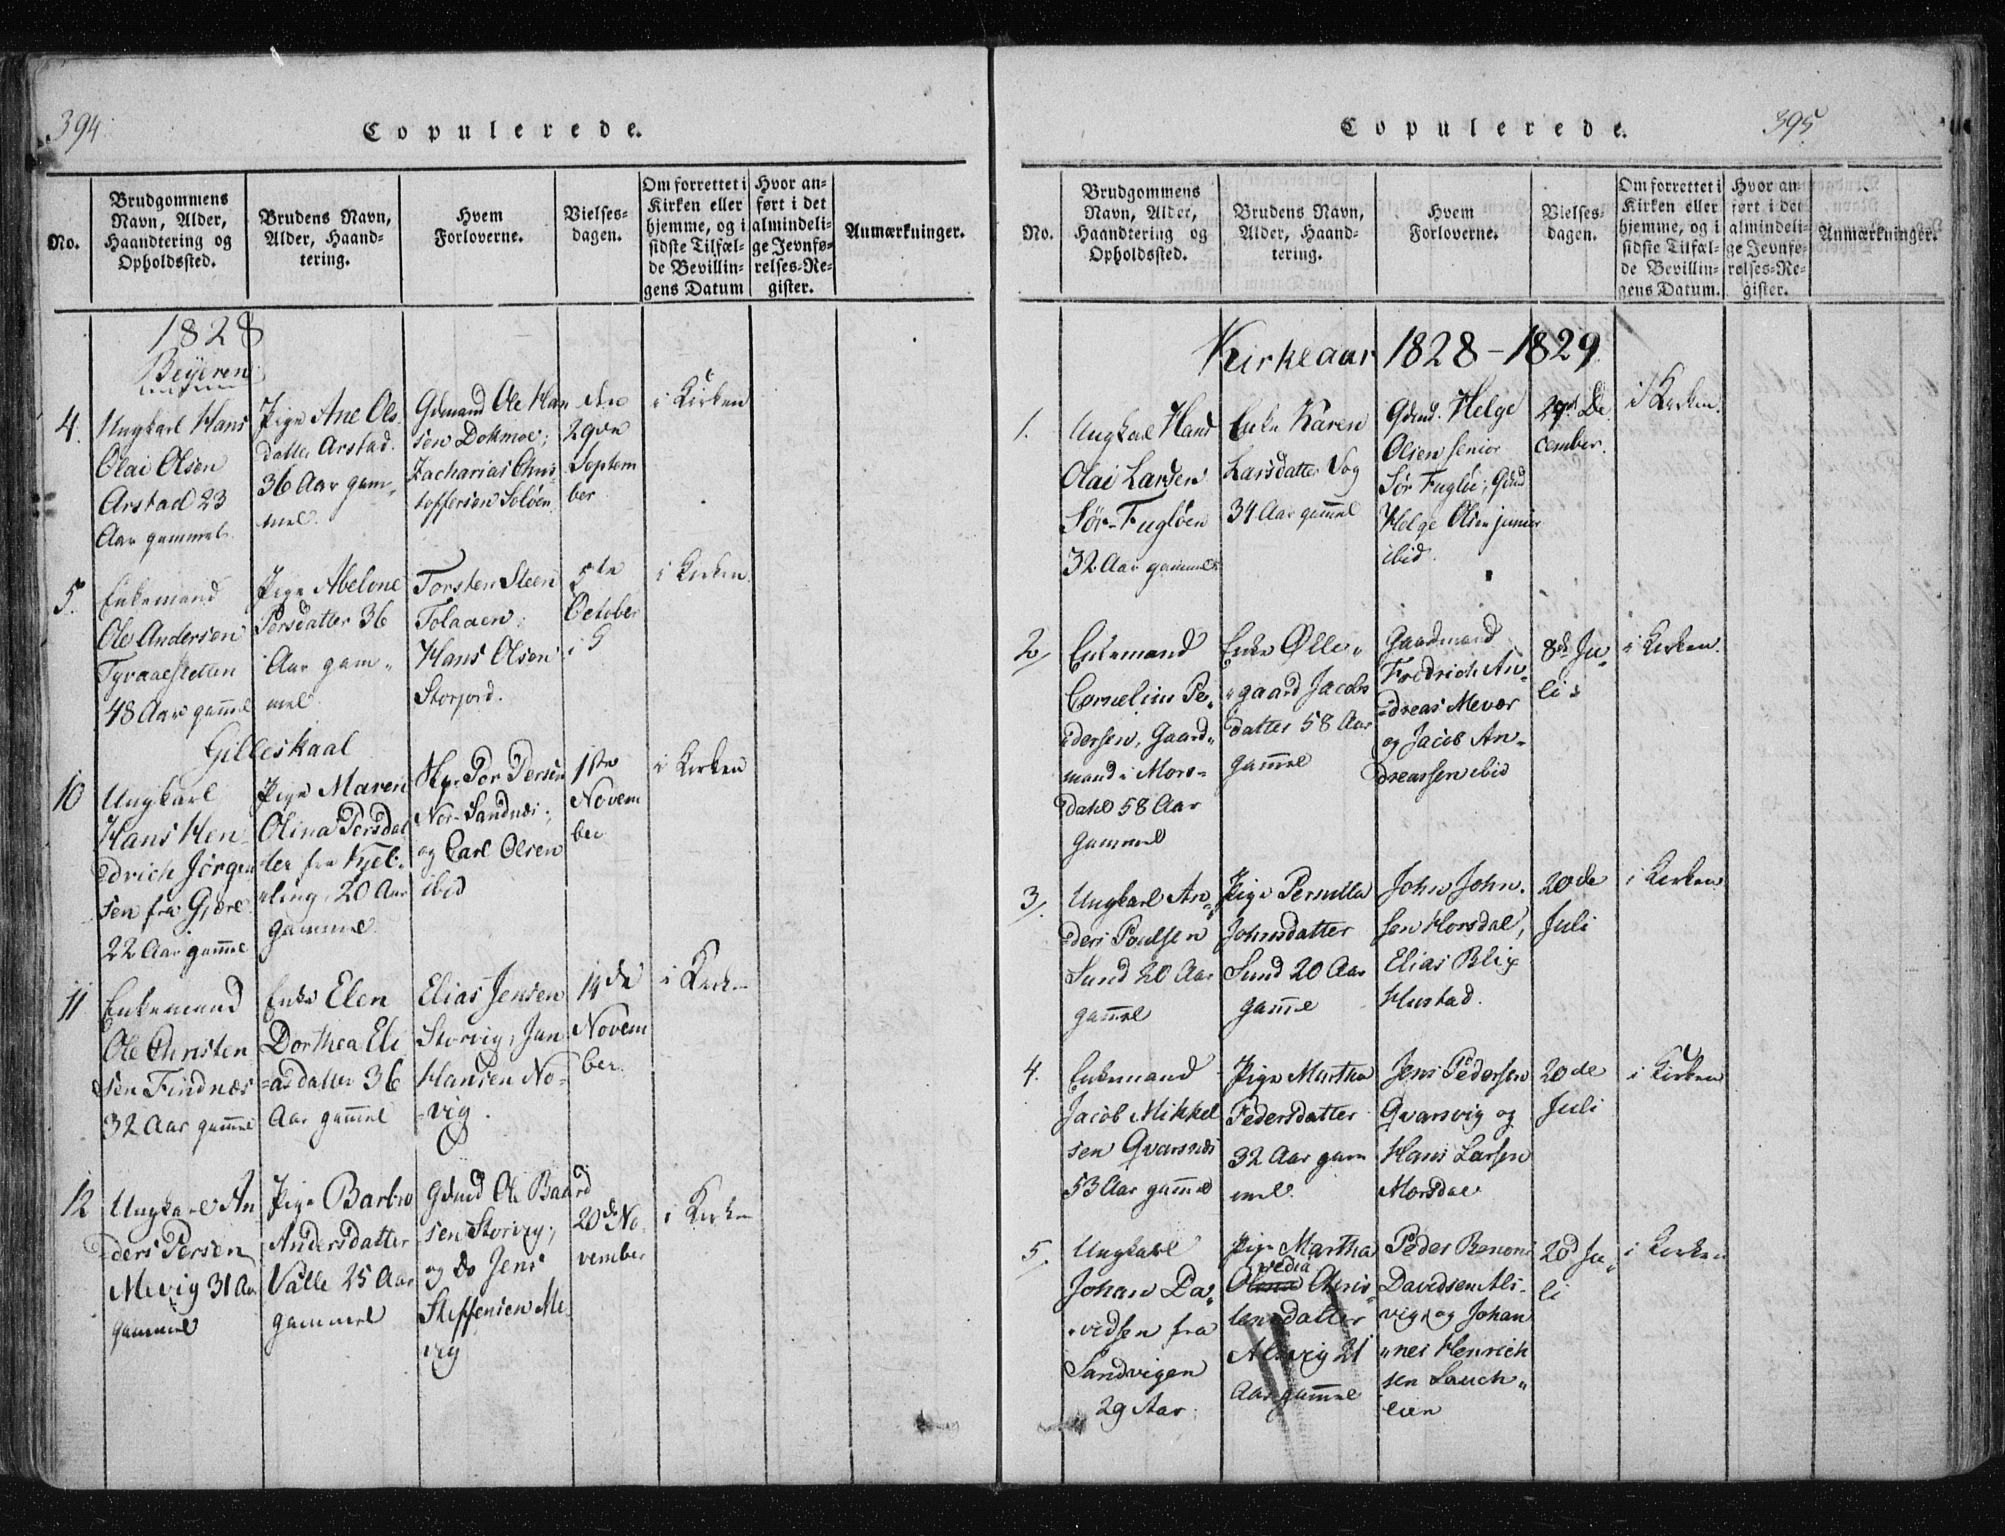 394
Copulerede.
No.
Brudgommens
Navn, Alder,
Haandtering og
Opholdssted.
Brudens Navn,
Alder, Haand-
tering.
Hvem
Forloverne.
Vielses-
dagen.
Om forrettet i
Kirken eller
hjemme, og i
sidste Tilfæl-
de Bevillin-
gens Datum
Hvor an-
ført i det
almindeli-
ge Jevnfø-
relses-Re-
gister.
Anmærkninger.
1828
Beyeren
4.
Ungkarl Hans
Olai Olsen
Arstad 23
Aar gammel.
Pige Ane Ols
datter Arstad.
36 Aar gam-
mel.
Gdmand Ole Han
sen Dokmoe;
Zacharias Chris
toffersen Soløen
den
29de
Septem
ber
i Kirken
5.
Enkemand
Ole Andersen
Tyvaaestellen
48 Aar gammel
Pige Abelone
Persdatter 36
Aar gam-
mel.
Torsten Steen
Tolaaen;
Hans Olsen
Storjord.
5te
October
i Kirken.
Gilleskaal
10
Ungkarl
Hans Hen-
drich Jørgen
sen fra Gjære
22 Aar gammel
Pige Maren
Olina Persdat
ter fra Kjel-
ling, 20 Aar
gammel
Per Persen
Nor-Sandnæs;
og Carl Olsen
ibid
1ste
Novem
ber
i Kirken
11
Enkemand
Ole Christen
sen Findnæs
32 Aar gammel
Enke Elen
Dorthea Eli
=asdatter 36
Aar gammel
Elias Jensen
Storvig, Jan
Hansen No-
vig.
14de
Novem
ber.
i Kirken
12
Ungkarl An
ders Persen
Mevig 31 Aar
gammel
Pige Barbro
Andersdatter
Valle 25 Aar
gammel
Gdmd Ole Baard
sen Storvig;
og do Jens
Steffensen Me
vig
20de No
vember
i Kirken
395
Copulerede.
No.
Brudgommens
Navn, Alder,
Haandtering og
Opholdssted.
Brudens Navn,
Alder, Haand-
tering.
Hvem
Forloverne.
Vielses-
dagen.
Om forrettet i
Kirken eller
hjemme, og i
sidste Tilfæl-
de Bevillin-
gens Datum.
Hvor an-
ført i det
almindeli-
ge Jevnfø-
relses-Re-
gister.
Anmærkninger.
Kirkeaar 1828-1829
1.
Ungkarl Hans
Olai Larsen
Sør-Fugløen
32 Aar gammel
Enke Karen
Larsdatter Sog
34 Aar gammel
Gdmd. Helge
Olsen senior
Sør Fugløe; Gdmd
Helge Olsen junior
ibid.
De
cember.
i Kirken.
2/
Enkemand
Cornelius Pe-
dersen, Gaard-
mand i Mors-
dahl 58 Aar
gammel
Enke Ølle-
gaard Jacobs
datter 58 Aar
gammel
Gaardmand
Fredrich An-
dreas Mevær
og Jacob An-
dreassen ibid
8de Ju-
li
i Kirken.
3/.
Ungkarl An-
ders Poulsen
Sund 20 Aar
gammel
Pige Pernilla
Johnsdatter
Sund 20 Aar
gammel
John John-
sen Horsdal,
Elias Blix
Hustad.
20de
Juli
i Kirken
4.
Enkemand
Jacob Mikkel
sen Qvarsnæs
53 Aar gammel
Pige Martha
Pedersdatter
32 Aar gam
mel.
Jens Pedersen
Qvarsvig og
Hans Larsen
Morsdal
20de
Juli
i Kirken
5.
Ungkarl
Johan Da-
vidsen fra
Sandvigen
29 Aar.
Pige Martha
vedia
Olena Chris-
tensdatter
Alsvig 21
Aar gammel
Peder Benoni
Davidsen Als-
vig, og Johan
nes Henrich
sen Lauch-
lien
20d Ju-
li
i Kirken